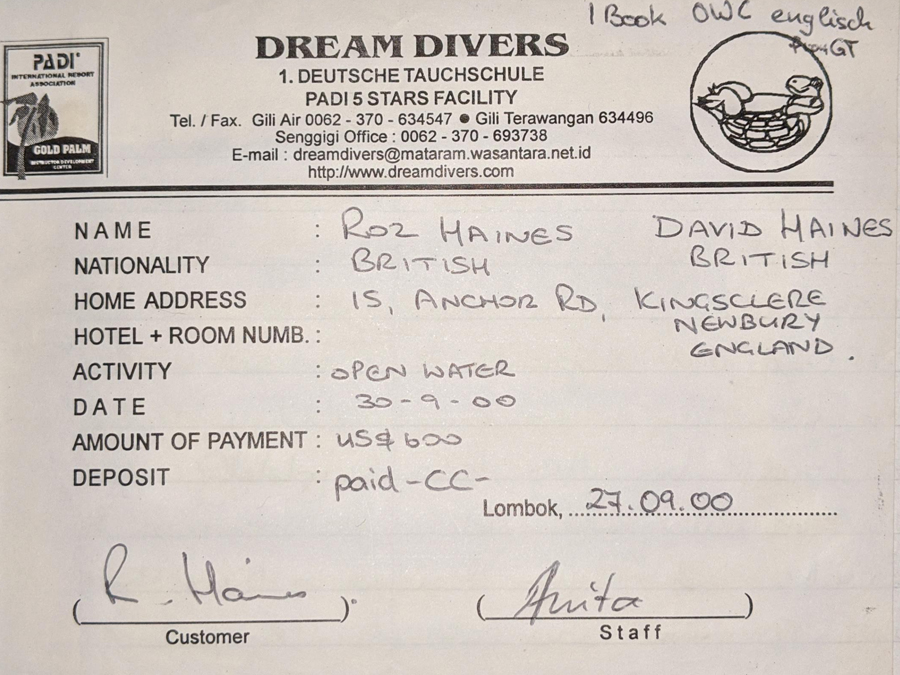 1 Book OWC englisch
GT
PADI
INTERNATIONAL RESORT
ASSOCIATION
GOLD PALM
INSTRUCTOR DEVELOPMENT
CENTER
DREAM DIVERS
1. DEUTSCHE TAUCHSCHULE
PADI 5 STARS FACILITY
Tel. / Fax. Gili Air 0062 - 370 - 634547 ● Gili Terawangan 634496
Senggigi Office : 0062 - 370 - 693738
E-mail : dreamdivers@mataram.wasantara.net.id
http://www.dreamdivers.com
NAME : ROZ HAINES DAVID HAINES
NATIONALITY : BRITISH BRITISH
HOME ADDRESS : 15, ANCHOR RD, KINGSCLERE
NEWBURY
HOTEL + ROOM NUMB. :
ENGLAND.
ACTIVITY : OPEN WATER
DATE : 30-9-00
AMOUNT OF PAYMENT : US$ 600
DEPOSIT : paid -CC-
Lombok, 27.09.00
(R. Haines)
(Anita)
Customer
Staff